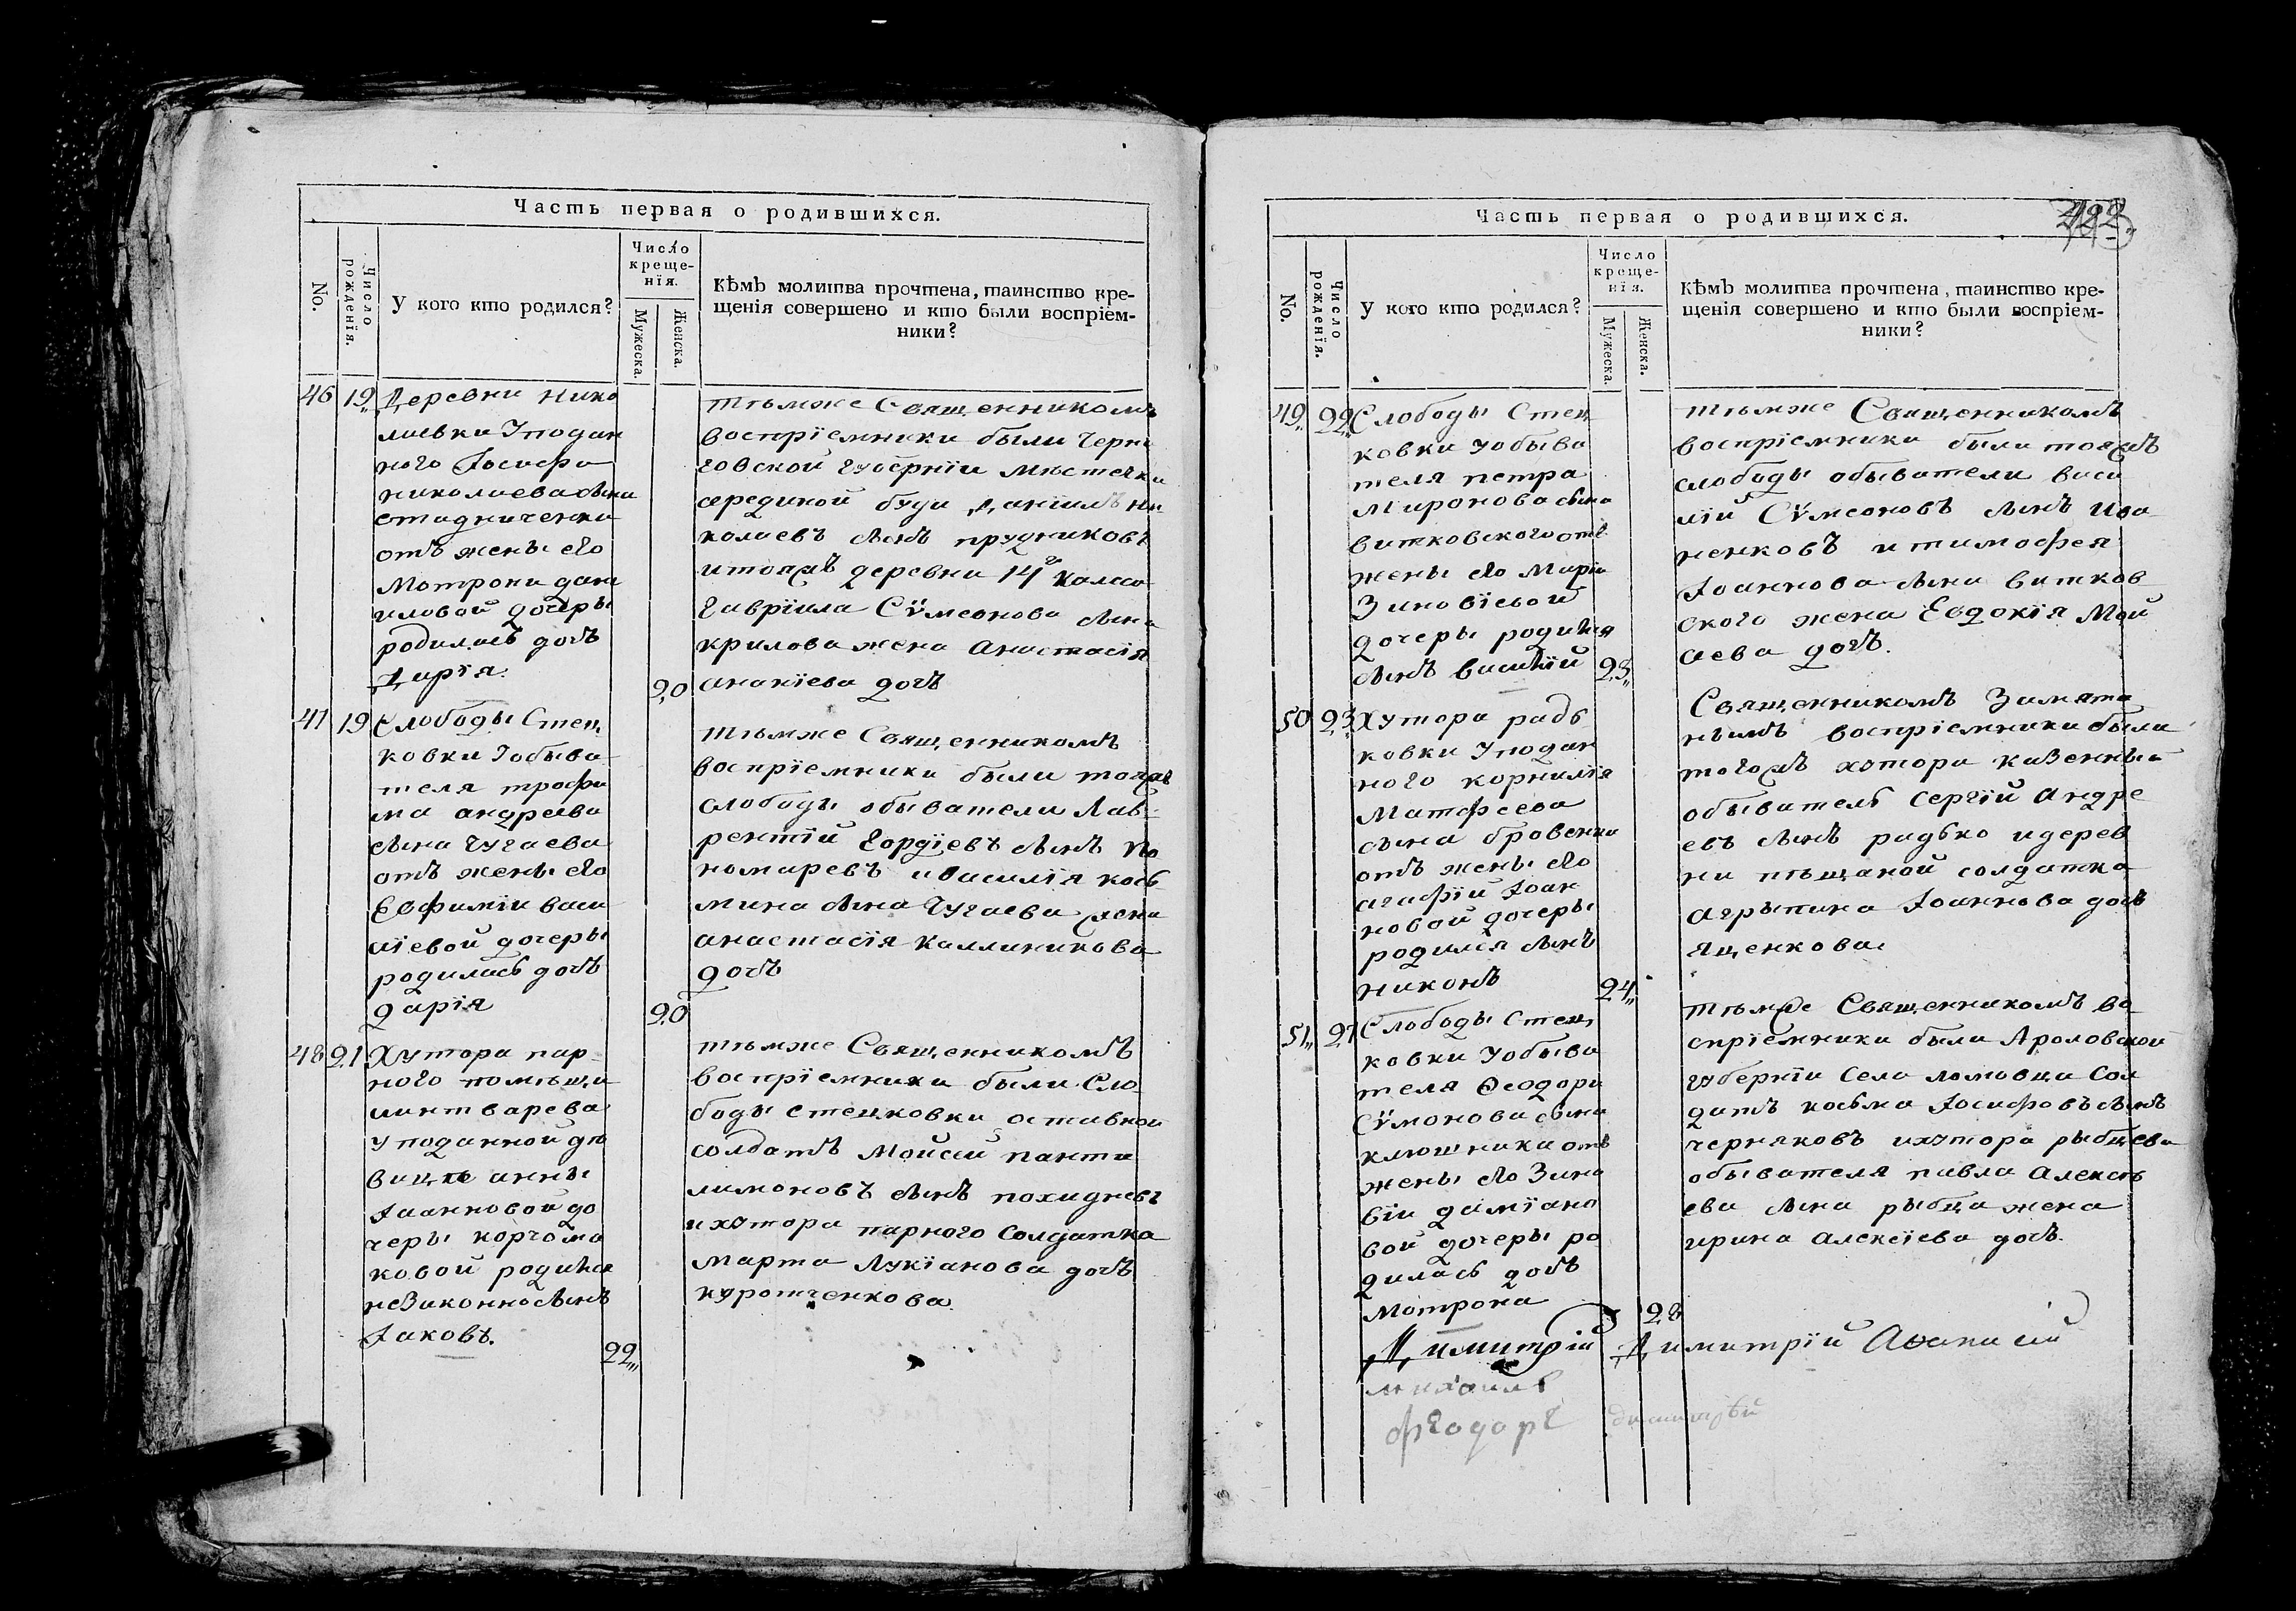 Часть первая о родившихся.
No.
Число рожденія.
У кого кто родился?
Число
креще-
нія.
Мужеска.
Женска.
Кѣмъ молитва прочтена, таинство кре-
щенія совершено и кто были воспріем-
ники?
46 19 Деревни Нико
лаевки Уподан
ного Іосифа
николаева сына
стадниченка
отъ жены его
Мотрони дани
иловой дочеры
родилась дочь
Дарія.
20
тѣмже Священникомъ
воспріемники были Черни
говской губерніи Мѣстечка
середеной буди Даніилъ Ни
колаевъ сынъ прудниковъ
итояжъ деревни 14го класа
Гавріила Сѵмеонова сына
крилова жена Анастасія
ананіева дочь
47 19 Слободы Стец
ковки Уобыва
теля трофи
ма андреева
сына Чугаева
отъ жены его
Евфиміи васи
ліевой дочеры
родилась дочь
дарія
20
тѣмже Священникомъ
воспріемники были тояжъ
слободы обыватели Лав-
рентій Гордіевъ сынъ По
номаревъ иВасилія кось
мина сына Чугаева жена
анастасія каллиникова
дочь
48 21 Хутора пар-
ного помѣщи
линтварева
Уподанной дѣ
вицы анны
Іоанновой до
черы корчома
ковой родился
незаконно сынъ
Іаковъ.
22
тѣмже Священникомъ
воспріемники были Сло
боды стецковки оставной
солдатъ Мойсей панти
лимоновъ сынъ походневъ
ихутора парного Солдатка
марта Лукіанова дочь
куротченкова.
Часть первая о родившихся.
422
No.
Число рожденія.
У кого кто родился?
Число
креще-
нія.
Мужеска.
Женска.
Кѣмъ молитва прочтена, таинство кре-
щенія совершено и кто были воспріем-
ники?
49 22 Слободы Стец
ковки Уобыва
теля петра
Миронова сына
витковского отъ
жены его Маріи
Зиновіевой
дочеры родился
сынъ василій
23
тѣмже Священникомъ
воспріемники были тояжъ
слободы обыватели васи
лій Сѵмеоновъ сынъ Ива
ненковъ и тимофея
Іоаннова сына витков
ского жена Евдокія Мой
сеева дочь.
50 23 Хутора радь
ковки Уподан
ного корнилія
Матфеева
сына бровенка
отъ жены его
агафіи Іоан
новой дочеры
родился сынъ
никонъ
24
Священникомъ Замята
нымъ воспріемники были
тогожъ хутора казенный
обыватель Сергій Андре
евъ сынъ радько идерев
ни пѣщаной солдатка
агрыпина Іоаннова дочь
яценкова.
51 27 Слободы Стец
ковки Уобыва
теля Ѳеодора
Сѵмонова сына
клюшника отъ
жены его Зино
віи даміано
вой дочеры ро
дилась дочь
Мотрона
28
тѣмже Священникомъ во
спріемники были Яроловской
губерніи Села ломовца Сол
датъ косьма Іосифовъ сынъ
черняковъ ихутора рыбцева
обывателя павла Алексѣ
ева сына рыбца жена
ирина алексіева дочь.
Димитрій Димитрій Аѳанасій
михаилъ
фѣодоръ димитрій